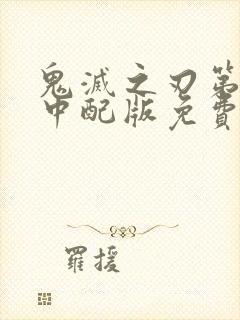 鬼滅之刃第
中配版免費
羅援